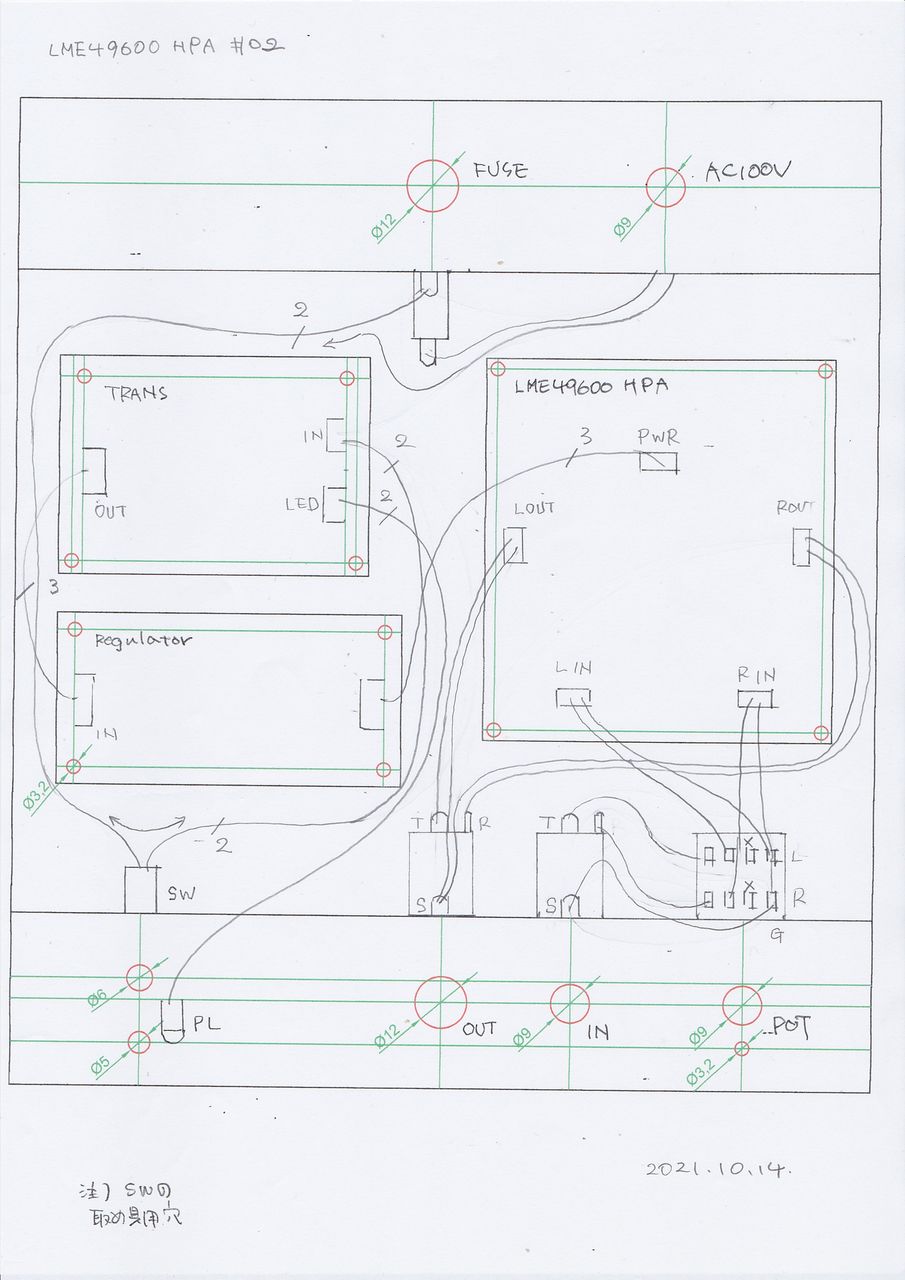 LME49600 HPA #02
FUSE
AC100V
Ø12
Ø9
2
TRANS
IN
2
OUT
LED
2
3
LME49600 HPA
3
PWR
LOUT
ROUT
Regulator
IN
Ø3,2
L IN
R IN
2
SW
T
R
S
T
R
S
L
R
G
Ø6
PL
Ø5
Ø12
OUT
Ø9
IN
Ø9
POT
Ø3,2
2021.10.14.
注) SWの
取め具用穴